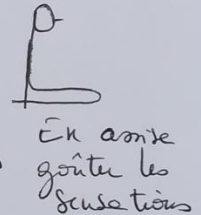 En assise
goûter les
sensations